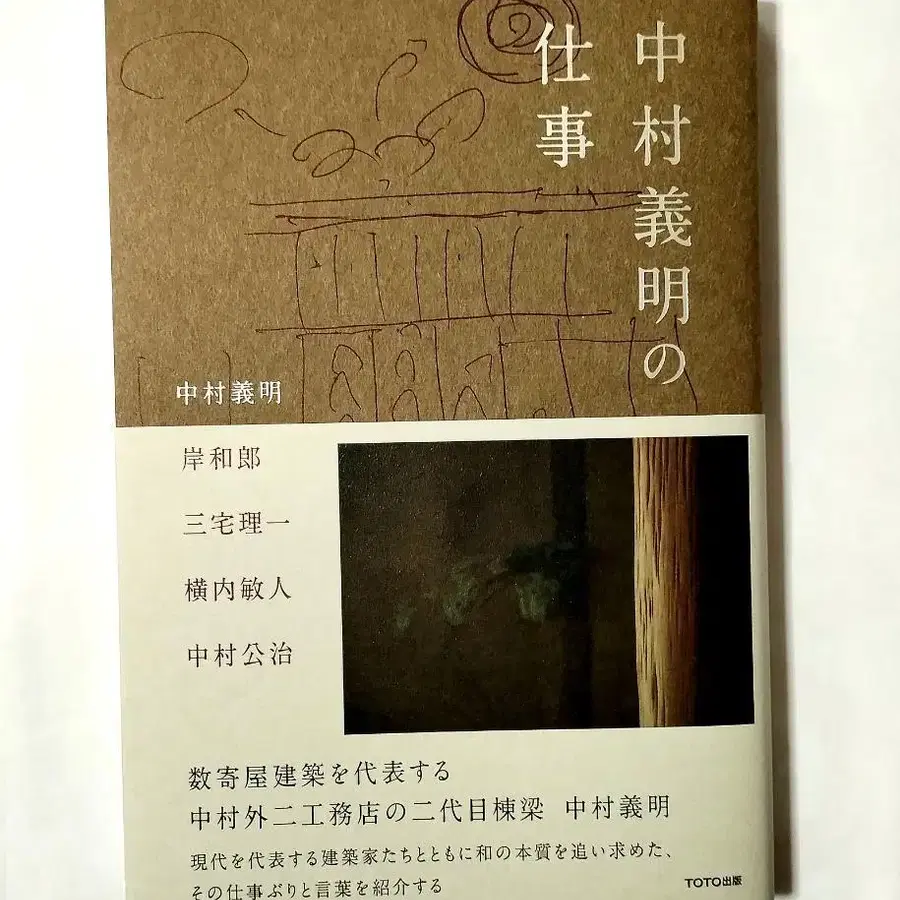 中村義明の
仕事
中村義明
岸和郎
三宅理一
横内敏人
中村公治
数寄屋建築を代表する
中村外二工務店の二代目棟梁 中村義明
現代を代表する建築家たちとともに和の本質を追い求めた、
その仕事ぶりと言葉を紹介する
TOTO出版